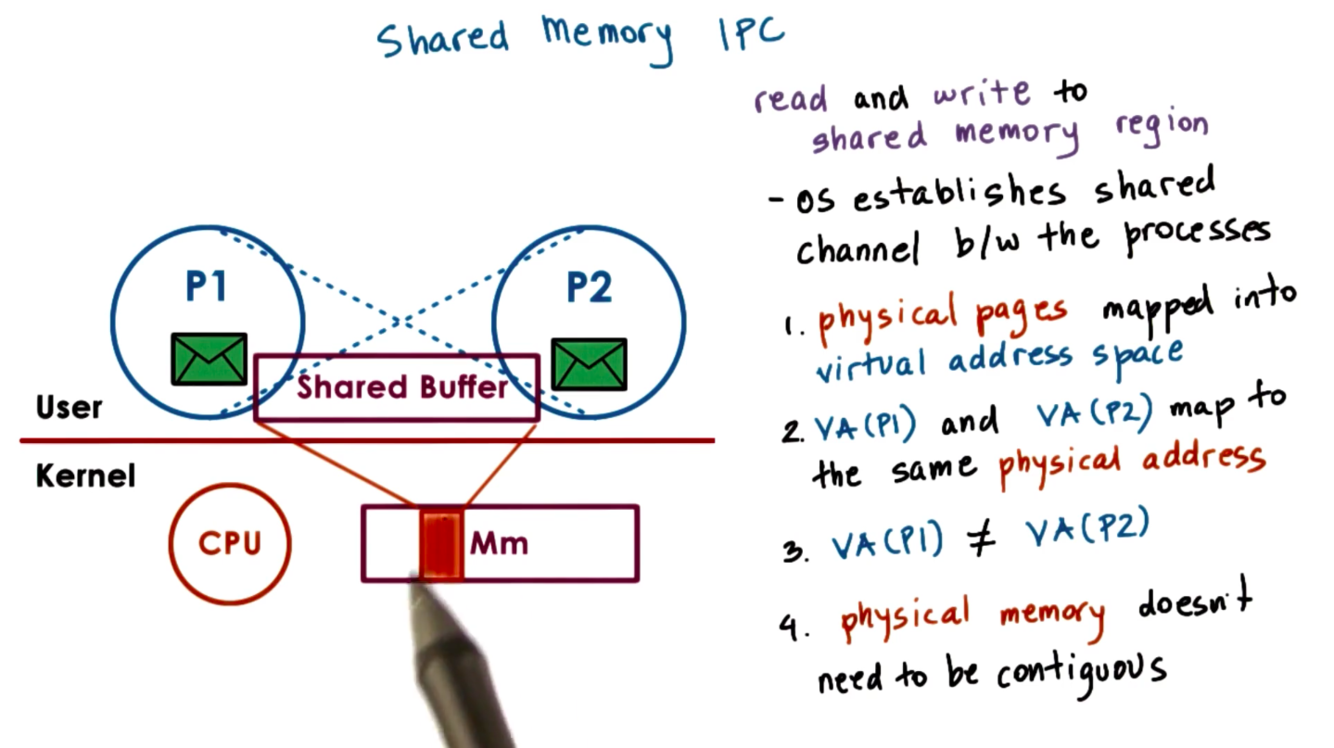 Shared Memory IPC
read and write to
shared memory region
- OS establishes shared
channel b/w the processes
1. physical pages mapped into
virtual address space
2. VA(P1) and VA(P2) map to
the same physical address
3. VA(P1) ≠ VA(P2)
4. physical memory doesn't
need to be contiguous
P1
P2
Shared Buffer
User
Kernel
CPU
Mm